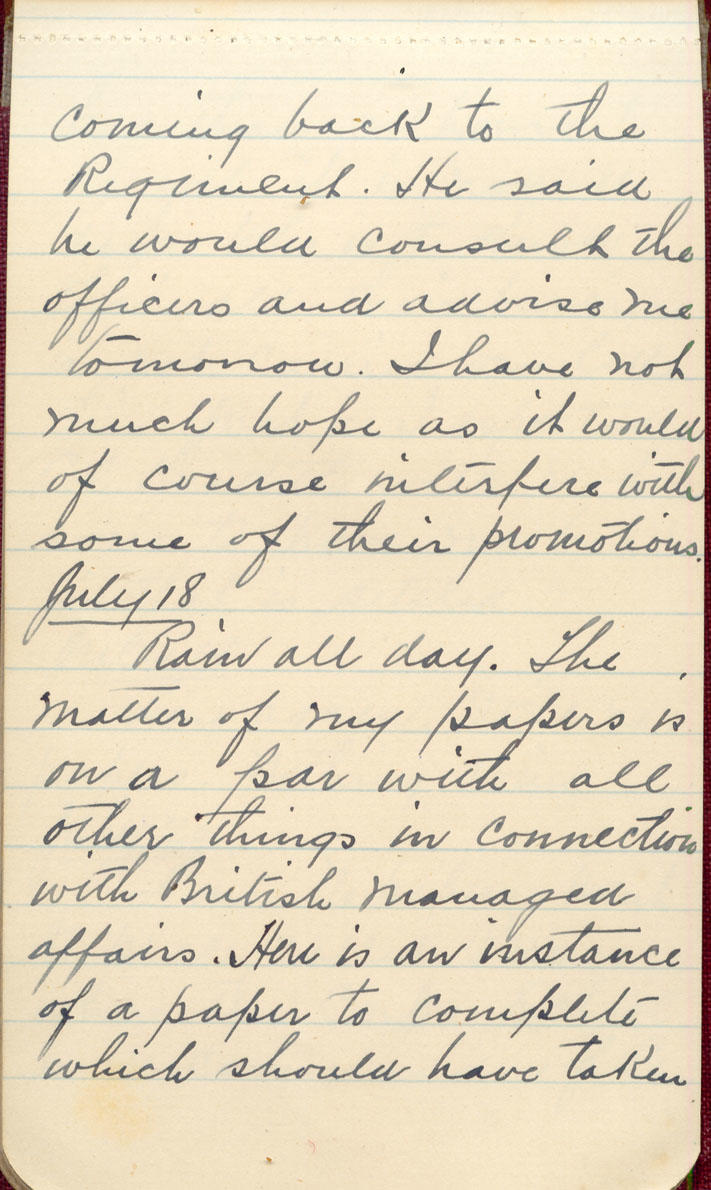 coming back to the
Regiment. He said
he would consult the
officers and advise me
tomorrow. I have not
much hope as it would
of course interfere with
some of their promotions.
July 18
Rain all day. The
matter of my papers is
on a par with all
other things in connection
with British managed
affairs. Here is an instance
of a paper to complete
which should have taken